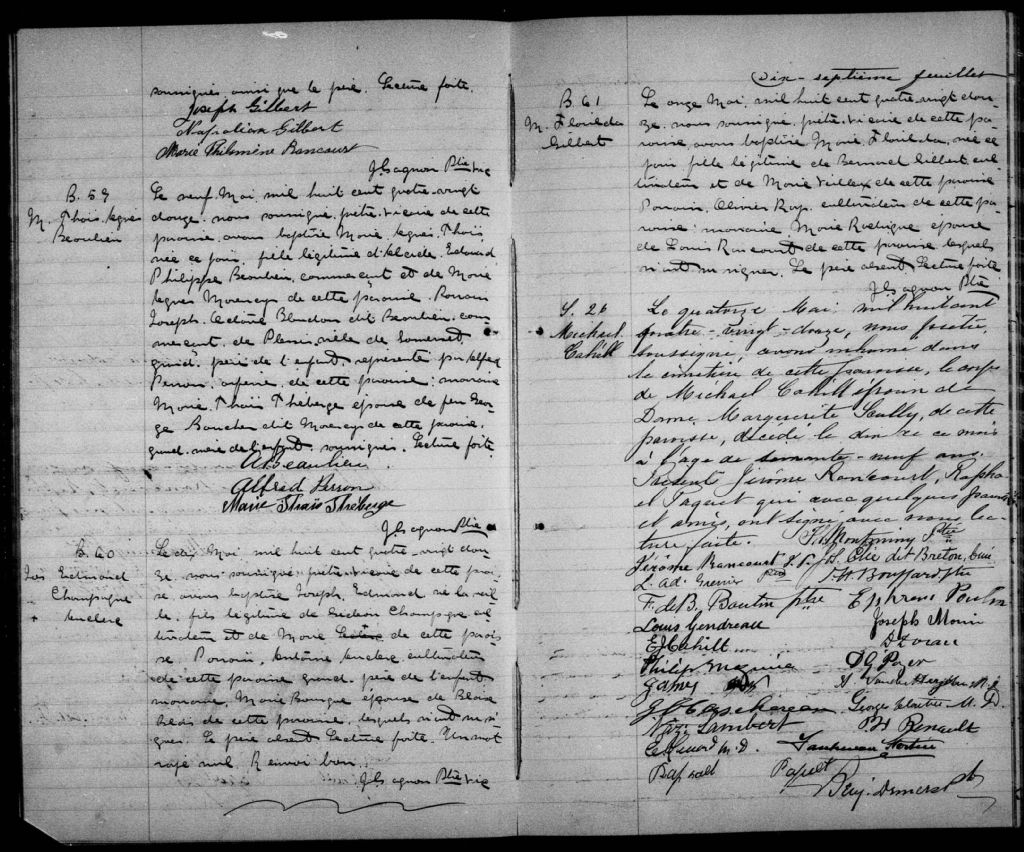 soussignés, ainsi que le père. Lecture faite.
Joseph Gilbert
Napoléon Gilbert
Marie Philomène Rancourt
J. Gagnon Ptre Vic
B. 59
M. Thaïs Agnes
Beaulieu
Le neuf Mai mil huit cent quatre-vingt
douze, nous soussigné, prêtre, vicaire de cette
paroisse, avons baptisé Marie, Agnes, Thaïs
née ce jour, fille légitime d'Alcide, Edouard
Philippe Beaulieu, commerçant et de Marie
Agnes Morency de cette paroisse. Parrain
Joseph, Octave Blondeau dit Beaulieu, com-
merçant, de Plessisville de Somerset
grand-père de l'enfant, représenté par Alfred
Perron, de cette paroisse; marraine
Marie, Thaïs Théberge épouse de feu Geor-
ge Boucher dit Morency de cette paroisse,
grand-mère de l'enfant, soussignés. Lecture faite
A Beaulieu
Alfred Perron
Marie Thaïs Théberge
J. Gagnon Ptre
B. 60
Jos Edmond
Champagne
Le dix Mai mil huit cent quatre-vingt dou-
ze, nous soussigné, prêtre, vicaire de cette parois-
se, avons baptisé Joseph, Edmond né la veil-
le, fils légitime de Gédéon Champagne cul-
tivateur et de Marie de cette parois-
se. Parrain, Antoine cultivateur
de cette paroisse grand-père de l'enfant
marraine, Marie Bourque épouse de Blaise
de cette paroisse, lesquels n'ont su si-
gner. Le père absent Lecture faite. Un mot
rayé nul. Renvoi bon.
J. Gagnon Ptre Vic
Dix-septième feuillet
B. 61
M. Florilda
Gilbert
Le onze Mai, mil huit cent quatre-vingt dou-
ze, nous soussigné, prêtre, vicaire de cette pa-
roisse, avons baptisé Marie, Florilda, née ce
jour fille légitime de Bernard Gilbert, cul-
tivateur et de Marie Veilleux de cette paroisse
Parrain, Olivier Roy, cultivateur de cette pa-
roisse: marraine, Marie Rodrigue épouse
de Louis Rancourt de cette paroisse lesquels
n'ont su signer. Le père absent Lecture faite
J. Gagnon Ptre
S. 26
Michael
Cahill
Le quatorze Mai, mil huit cent
quatre-vingt-douze, nous prêtre,
soussigné, avons inhumé dans
le cimetière de cette paroisse, le corps
de Michael Cahill époux de
Dame Marguerite Scully, de cette
paroisse, décédé le dix de ce mois
à l'âge de soixante-neuf ans.
Présents Jérôme Rancourt, Rapha-
el Paquet qui avec quelques parents
et amis, ont signé avec nous. Lec-
ture faite. T. Montminy Ptre
Jérôme Rancourt J. S. Elie dit Breton, curé
L. Ad. Grenier Ptre J. H. Bouffard ptre
F. de B. Boutin ptre Ephrem Poulin
Louis Gendreau Joseph Morin
E J Cahill
Philip Maguire O G Payer
James
George Cloutier M. D.
Naz. Lambert P H Renault
M. D.
Raphael Paquet
Benj. Demers Ptre